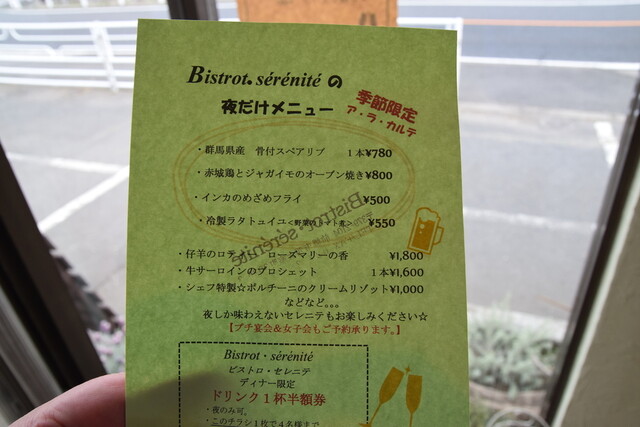 Bistrot. sérénité の
夜だけメニュー
季節限定
ア・ラ・カルテ
・群馬県産 骨付スペアリブ 1本¥780
・赤城鶏とジャガイモのオーブン焼き¥800
・インカのめざめフライ ¥500
・冷製ラタトゥイユ<野菜の ト煮> ¥550
・仔羊のロティ ローズマリーの香 ¥1,800
・牛サーロインのブロシェット 1本¥1,600
・シェフ特製☆ポルチーニのクリームリゾット¥1,000
などなど。。。
夜しか味わえないセレニテもお楽しみください☆
【プチ宴会&女子会もご予約承ります。】
Bistrot・sérénité
ビストロ・セレニテ
ディナー限定
ドリンク1杯半額券
・夜のみ可。
・このチラシ1枚で4名様まで